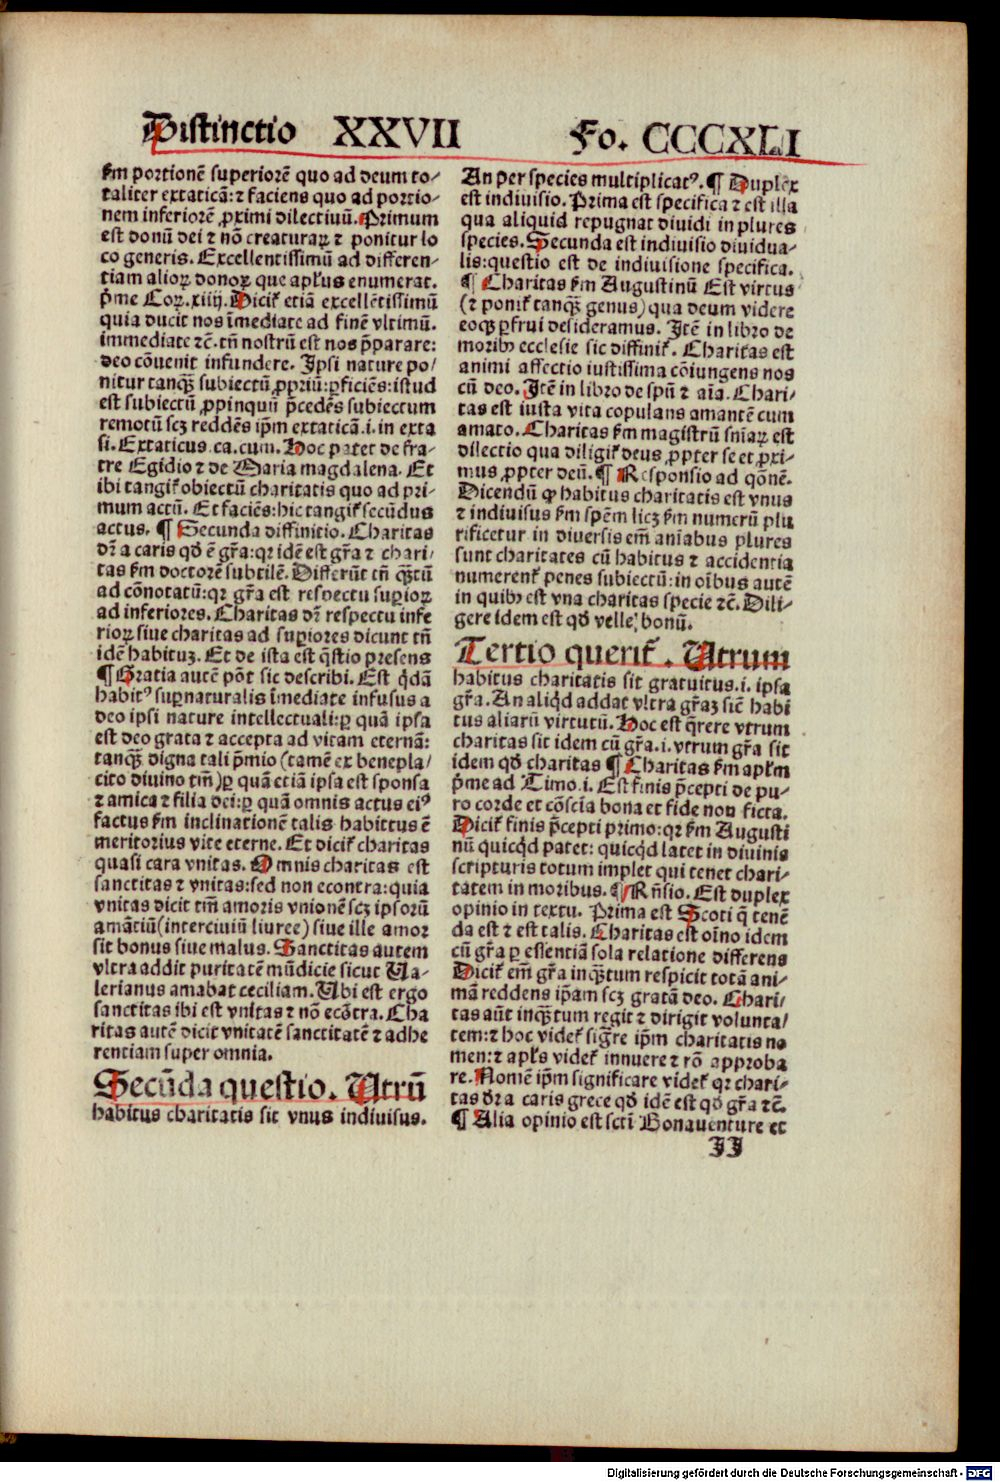 Distinctio XXVII Fo. CCCXLI
ẜm portionē superiorē quo ad deum to⸗
taliter extaticā: ⁊ faciens quo ad portio⸗
nem inferiorē ꝓximi dilectiuū. Primum
est donū dei ⁊ nō creaturaꝝ ⁊ ponitur lo
co generis. Excellentissimū ad differen⸗
tiam alioꝝ donoꝝ que apl̄us enumerat.
p̄me Coꝝ. xiiij. Dicit᷑ etiā excellētissimū
quia ducit nos īmediate ad finē vltimū.
immediate ⁊c̄. tn̄ nostrū est nos p̄parare:
deo cōuenit infundere. Ipsi nature po⸗
nitur tanqᷓꝫ subiectū ꝓpriū: ꝑficiēs: istud
est subiectū ꝓpinquū p̄cedēs subiectum
remotū scꝫ reddēs ip̄m extaticā .i. in exta
si. Extaticus .ca.cum. Hoc patet de fra⸗
tre Egidio ⁊ de Maria magdalena. Et
ibi tangit᷑ obiectū charitatis quo ad pri⸗
mum actū. Et faciēs: hic tangit᷑ secūdus
actus. ¶ Secunda diffinitio. Charitas
dr̄ a caris qd̄ ē gr̄a: qꝛ idē est gr̄a ⁊ chari⸗
tas ẜm doctorē subtilē. Differūt tn̄ qᷓꝫtū
ad cōnotatū: qꝛ gr̄a est respectu suꝑioꝝ
ad inferiores. Charitas dr̄ respectu infe
rioꝝ siue charitas ad suꝑiores dicunt tn̄
idē habituꝫ. Et de ista est q̄stio presens
¶ Gratia autē pōt sic describi. Est qͥdā
habitꝰ suꝑnaturalis īmediate infusus a
deo ipsi nature intellectuali: ꝑ quā ipsa
est deo grata ⁊ accepta ad vitam eternā:
tanqᷓꝫ digna tali p̄mio (tamē ex benepla⸗
cito diuino tm̄) ꝑ quā etiā ipsa est sponsa
⁊ amica ⁊ filia dei: ꝑ quā omnis actus eiꝰ
factus ẜm inclinationē talis habittus ē
meritorius vite eterne. Et dicit᷑ charitas
quasi cara vnitas. Omnis charitas est
sanctitas ⁊ vnitas: sed non econtra: quia
vnitas dicit tm̄ amoris vnionē scꝫ ipsorū
amātiū (interciuiū liuree) siue ille amor
sit bonus siue malus. Sanctitas autem
vltra addit puritatē mūdicie sicut Va⸗
lerianus amabat ceciliam. Vbi est ergo
sanctitas ibi est vnitas ⁊ nō ecōtra. Cha
ritas autē dicit vnitatē sanctitatē ⁊ adhe
rentiam super omnia.
Secūda questio. Vtrū
habitus charitatis sit vnus indiuisus.
An per species multiplicatꝰ. ¶ Duplex
est indiuisio. Prima est specifica ⁊ est illa
qua aliquid repugnat diuidi in plures
species. Secunda est indiuisio diuidua⸗
lis: questio est de indiuisione specifica.
¶ Charitas ẜm Augustinū Est virtus
(⁊ ponit᷑ tanqᷓꝫ genus) qua deum videre
eoqꝫ ꝑfrui desideramus. Itē in libro de
moribꝰ ecclesie sic diffinit᷑. Charitas est
animi affectio iustissima cōiungens nos
cū deo. Itē in libro de spū ⁊ aīa. Chari⸗
tas est iusta vita copulans amantē cum
amato. Charitas ẜm magistrū sn̄iaꝝ est
dilectio qua diligit᷑ deus ꝓpter se et ꝓxi⸗
mus ꝓpter deū. ¶ Responsio ad qōnē.
Dicendū ꝙ habitus charitatis est vnus
⁊ indiuisus ẜm spēm licꝫ ẜm numerū plu
rificetur in diuersis em̄ aniabus plures
sunt charitates cū habitus ⁊ accidentia
numerent᷑ penes subiectū: in oībus autē
in quibꝰ est vna charitas specie ⁊c̄. Dili⸗
gere idem est qd̄ velle bonū.
Tertio querit᷑. Vtrum
habitus charitatis sit gratuitus .i. ipsa
gr̄a. An aliqͥd addat vltra gr̄aꝫ sicē habi
tus aliarū virtutū. Hoc est q̄rere vtrum
charitas sit idem cū gr̄a .i. vtrum gr̄a sit
idem qd̄ charitas ¶ Charitas ẜm apl̄m
p̄me ad Timo.i. Est finis p̄cepti de pu⸗
ro corde et cōscīa bona et fide non ficta.
Dicit᷑ finis p̄cepti primo: qꝛ ẜm Augusti
nū quicqͥd patet: quicqͥd latet in diuinis
scripturis totum implet qui tenet chari⸗
tatem in moribus. ¶ Rn̄sio. Est duplex
opinio in textu. Prima est Scoti q̄ tenē
da est ⁊ est talis. Charitas est oīno idem
cū gr̄a ꝑ essentiā sola relatione differens
Dicit᷑ em̄ gr̄a inqᷓꝫtum respicit totā ani⸗
mā reddens ip̄am scꝫ gratā deo. Chari⸗
tas aūt inqᷓꝫtum regit ⁊ dirigit volunta⸗
tem: ⁊ hoc videt᷑ sigͣre ip̄m charitatis no
men: ⁊ apl̄s videt᷑ innuere ⁊ rō approba
re. Nomē ip̄m significare videt᷑ qꝛ chari⸗
tas dr̄ a caris grece qd̄ idē est qd̄ gr̄a ⁊c̄.
¶ Alia opinio est sctī Bonauenture et
II
Digitalisierung gefördert durch die Deutsche Forschungsgemeinschaft - DFG